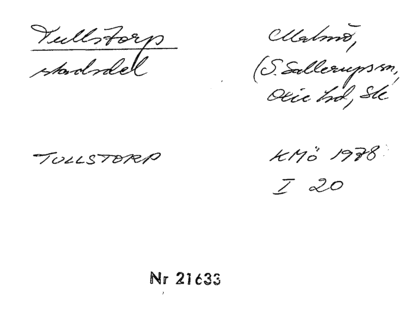 Tullstorp
stadsdel
Malmö,
(S. Sallerups sn,
Oxie hd, Sk
TULLSTORP
KMö 1978
I 20
Nr 21633